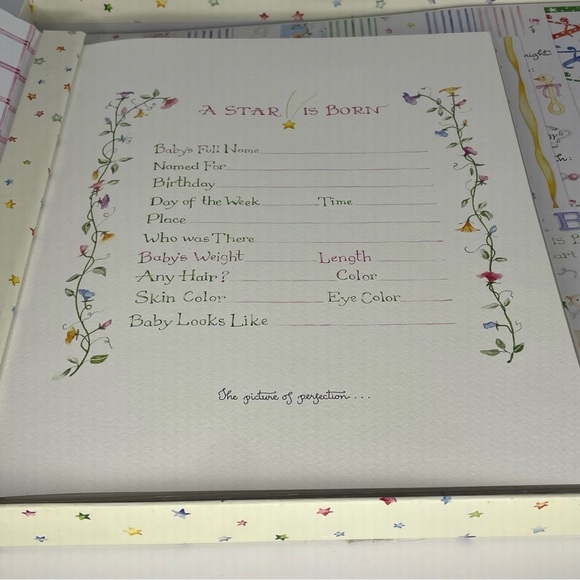 A STAR IS BORN
Baby's Full Name
Named For
Birthday
Day of the Week Time
Place
Who was There
Baby's Weight Length
Any Hair? Color
Skin Color Eye Color
Baby Looks Like
The picture of perfection...